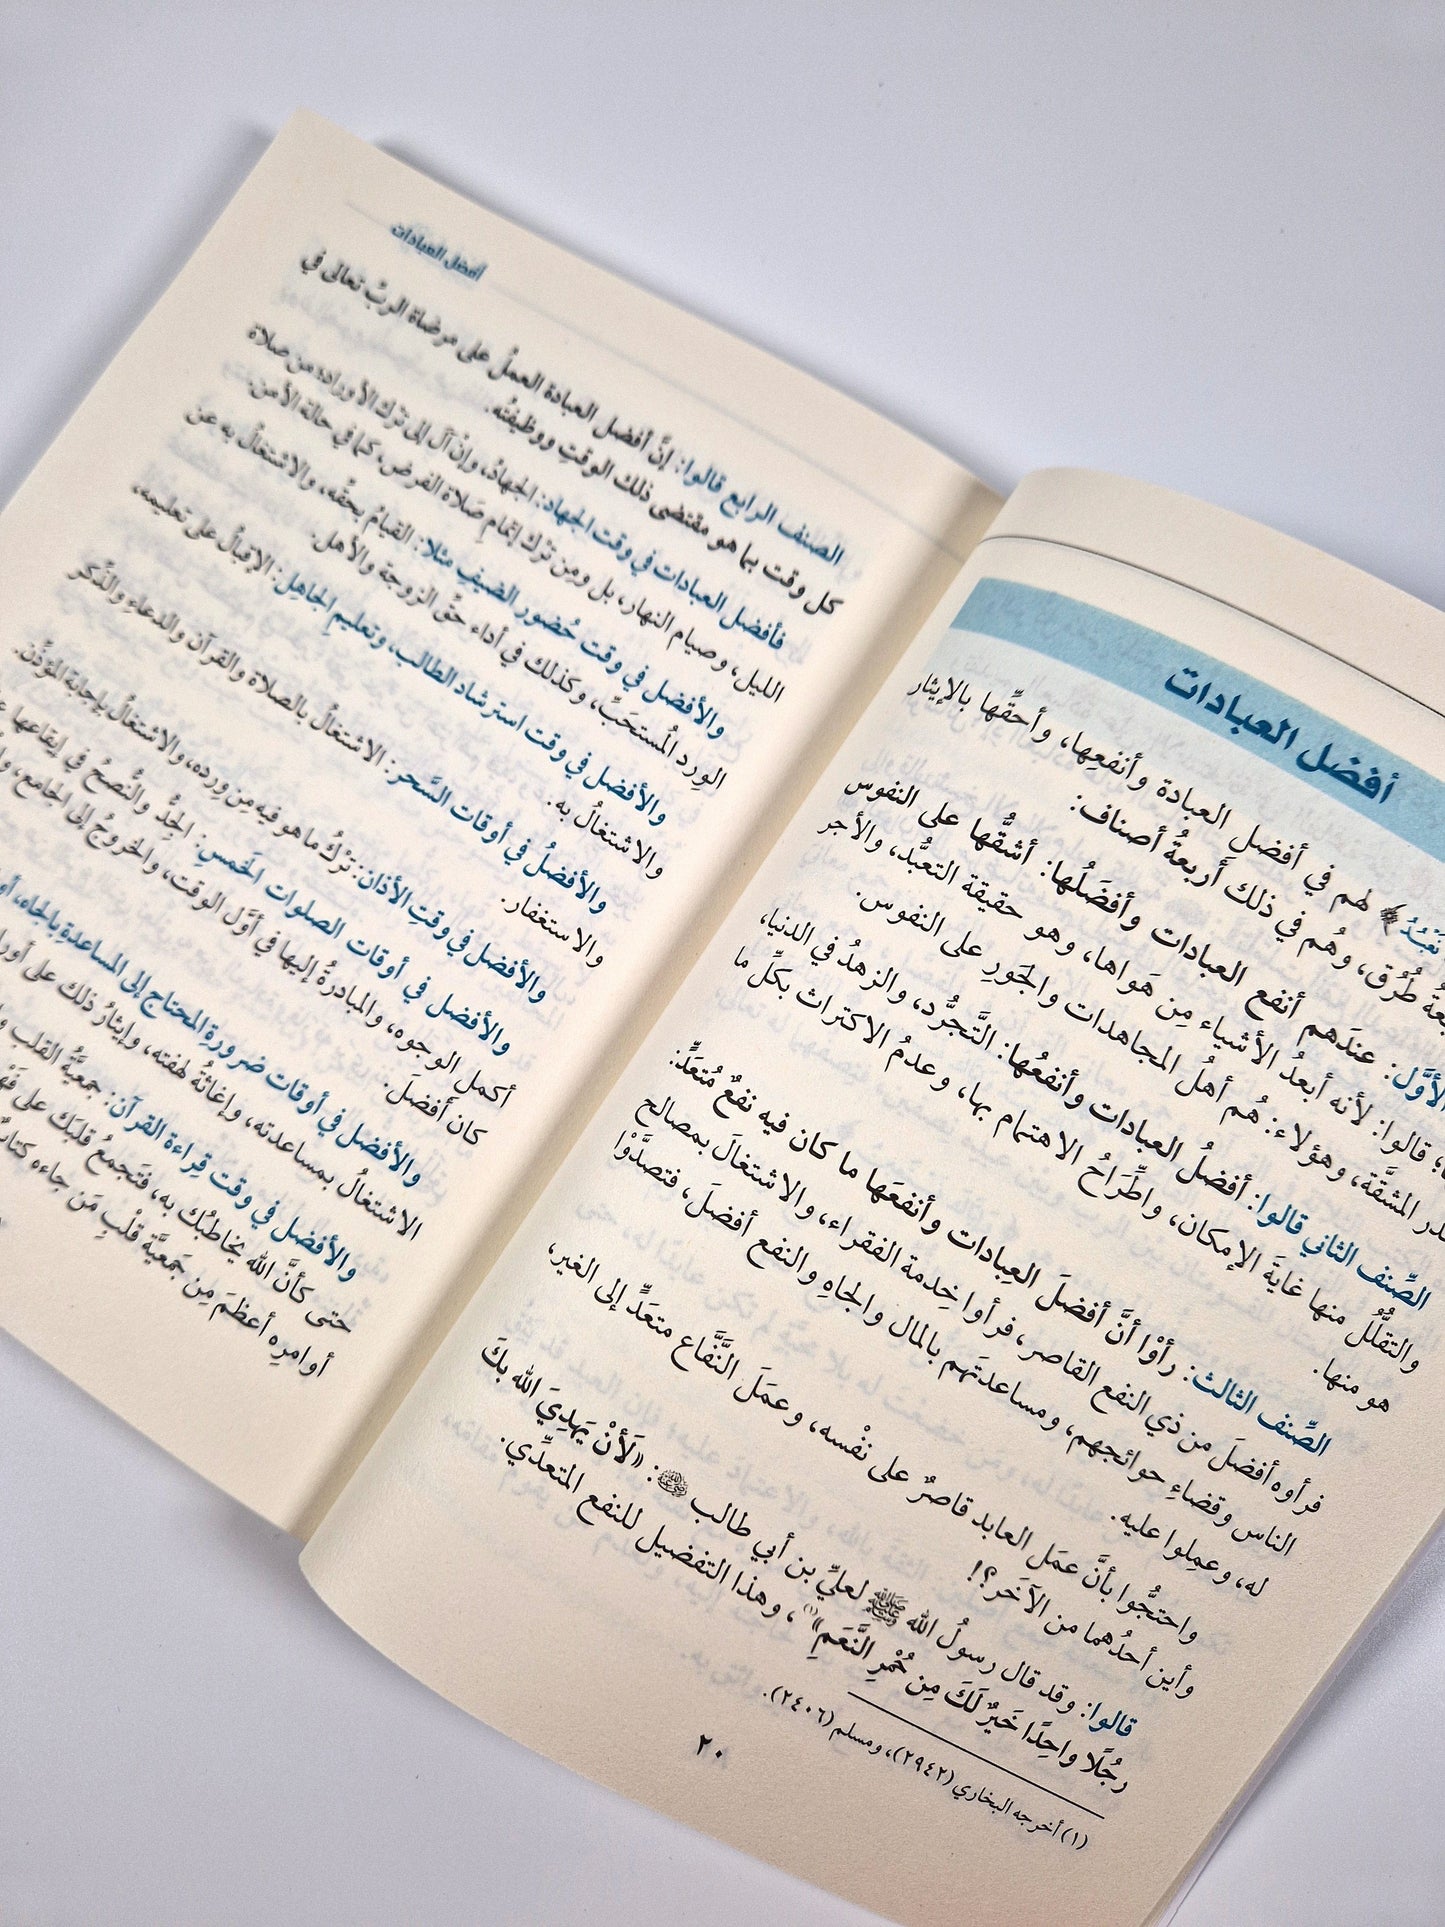 أفضل العبادات
نَعْبُدُ﴾ لهم في أفضل العبادة وأنفعِها، وأحقِّها بالإيثار
طُرُق، وهُم في ذلك أربعةُ أصناف:
الأوَّل: عندَهم أنفع العبادات وأفضَلُها: أشقُّها على النفوس
قالوا: لأنه أبعدُ الأشياء مِن هَواها، وهو حقيقة التعبُّد، والأجر
المشقَّة، وهؤلاء: هُم أهلُ المجاهدات والجَورِ على النفوس.
الصِّنف الثاني قالوا: أفضلُ العبادات وأنفعُها: التَّجرُّد، والزهدُ في الدنيا،
والتقلُّلُ منها غايةَ الإمكان، واطِّرَاحُ الاهتمام بها، وعدمُ الاكتراث بكلِّ ما
هو منها.
الصِّنف الثالث: رأوْا أنَّ أفضلَ العِبادات وأنفعَها ما كان فيه نفعٌ مُتعَدٍّ:
فرأوه أفضلَ من ذي النفع القاصر، فرأوا خِدمة الفقراء، والاشتغالَ بمصالح
الناس وقضاءِ حوائجهم، ومساعدتَهم بالمال والجاهِ والنفع أفضلَ، فتصدَّوْا
له، وعمِلوا عليه.
واحتجُّوا بأنَّ عمَل العابد قاصرٌ على نفْسه، وعمَلَ النَّفَّاع متعَدٍّ إلى الغير،
وأين أحدُهما من الآخَر؟!
قالوا: وقد قال رسولُ الله ﷺ لعليِّ بن أبي طالب: «لَأنْ يَهدِيَ الله بكَ
رجُلًا واحِدًا خَيرٌ لَكَ مِن حُمْرِ النَّعَمِ»(١)، وهذا التفضيل للنفع المتعدِّي.
(١) أخرجه البخاري (٢٩٤٢)، ومسلم (٢٤٠٦).
٢٠
أفضل العبادات
الصنف الرابع قالوا: إنَّ أفضل العبادة العملُ على مرضاة الربِّ تعالى في
كل وقت بما هو مقتضى ذلك الوقتِ ووظيفتُه.
فأفضل العبادات في وقت الجهاد: الجهادُ، وإنْ آل إلى ترْك الأوراد؛ من صلاة
الليل، وصيام النهار، بل ومِن ترْك إتمامِ صَلاة الفرض، كما في حالة الأمن.
والأفضل في وقت حُضور الضيفِ مثلا: القيامُ بحقِّه، والاشتغالُ به عن
الوِرد المُستحَبِّ، وكذلك في أداء حقِّ الزوجة والأهل.
والأفضل في وقت استرشاد الطالب، وتعليمِ الجاهِل: الإقبالُ على تعليمه،
والاشتغالُ به.
والأفضلُ في أوقات السَّحر: الاشتغالُ بالصلاة والقرآن والدعاءِ والذِّكر
والاستغفار.
والأفضل في وقتِ الأذان: ترْكُ ما هو فيه مِن وِرده، والاشتغالُ بإجابة المؤذِّن.
والأفضل في أوقات الصلوات الخَمسِ: الجِدُّ والنُّصحُ في إيقاعها
أكمل الوجوه، والمبادرةُ إليها في أوَّل الوقت، والخروجُ إلى الجامع،
كان أفضلَ.
والأفضل في أوقات ضرورةِ المحتاج إلى المساعدةِ بالجاه،
الاشتغالُ بمساعدته، وإغاثةُ لهفته، وإيثارُ ذلك على
والأفضل في وقت قِراءة القرآن: جمعيَّةُ القلب
حتى كأنَّ الله يخاطبُك به، فتَجمعُ قلبَك على
أوامرِه أعظمَ مِن جَمعيَّة قلْبِ مَن جاءه